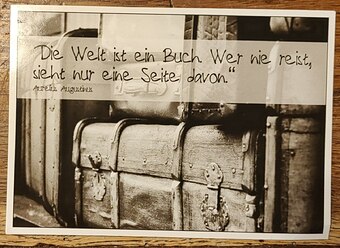 "Die Welt ist ein Buch. Wer nie reist,
sieht nur eine Seite davon."
Aurelius Augustinus